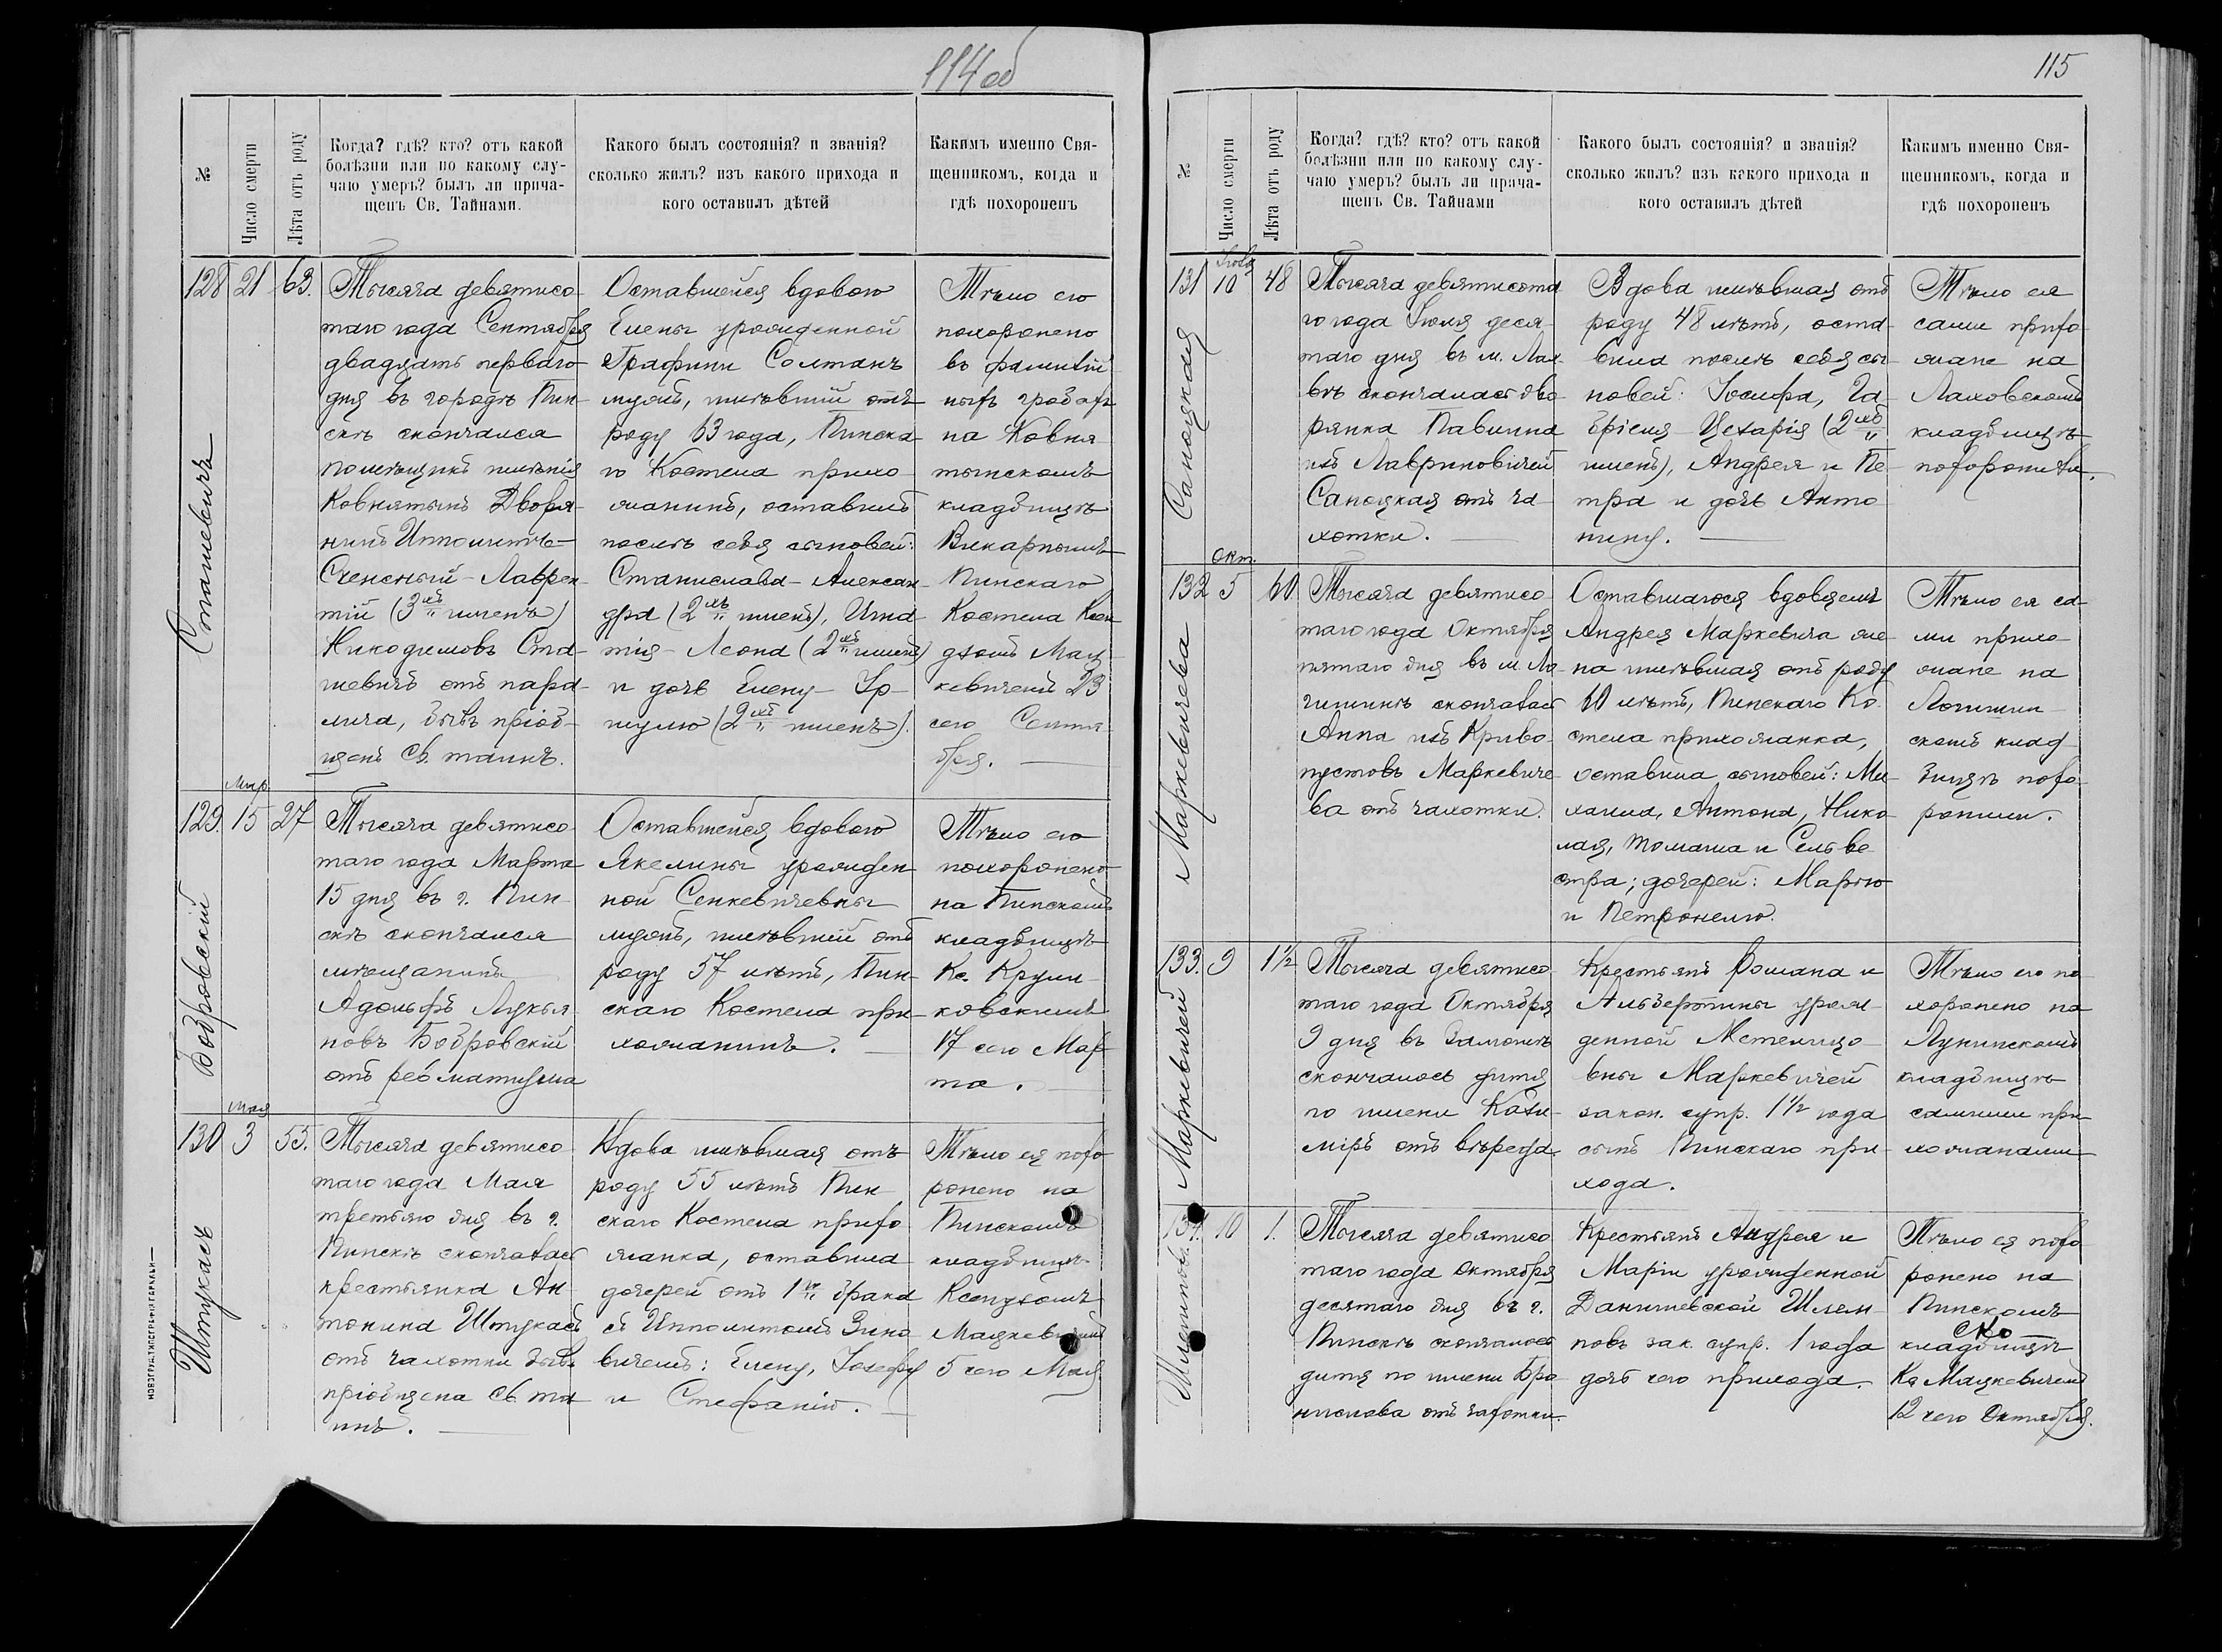 114об
№
Число смерти
Лѣта отъ роду
Когда? гдѣ? кто? отъ какой
болѣзни или по какому слу-
чаю умеръ? былъ ли прича-
щенъ Св. Тайнами.
Какого былъ состоянія? и званія?
сколько жилъ? изъ какого прихода и
кого оставилъ дѣтей
Какимъ именно Свя-
щенникомъ, когда и
гдѣ похороненъ
Сташевичъ
128 21 63.
Тысяча девятисо-
таго года Сентября
двадцать перваго
дня въ городѣ Пин-
скѣ скончался
помѣщикъ имѣнія
Ковнятынъ Дворя-
нинъ Ипполитъ-
Счснсный-Лаврен-
тій (3хъ именъ)
Никодимовъ Ста-
шевичъ отъ пара-
лича, бывъ пріоб-
щенъ Св. таинъ.
Оставшейся вдовою
Елены урожденной
Графини Солтанъ
мужъ, имѣвшій отъ
роду 63 года, Пинска-
го Костела прихо-
жанинъ, оставилъ
послѣ себя сыновей:
Станислава-Алексан-
дра (2хъ именъ), Игна-
тія-Леона (2хъ именъ)
и дочь Елену-Ур-
шулю (2хъ именъ).
Тѣло его
похоронено
въ фамилій-
ныхъ гробахъ
на Ковня-
тынскомъ
кладбищѣ
Викарнымъ
Пинскаго
Костела Ксен-
дзомъ Мац-
кевичемъ 23
сего Сентя-
бря.
Бобровскій
Мар.
129. 15 27
Тысяча девятисо-
таго года Марта
15 дня въ г. Пин-
скѣ скончался
мѣщанинъ
Адольфъ Лукья-
новъ Бобровскій
отъ ревматизма
Оставшейся вдовою
Якелины урожден-
ной Сенкевичевны
мужъ, имѣвшій отъ
роду 57 лѣтъ, Пин-
скаго Костела при-
хожанинъ.
Тѣло его
похоронено
на Пинскомъ
кладбищѣ
Кс. Круш-
ковскимъ
17 сего Мар-
та.
Штукасъ
Мая
130 3 55.
Тысяча девятисо-
таго года Мая
третьяго дня въ г.
Пинскѣ скончалась
крестьянка Ан-
тонина Штукасъ
отъ чахотки бывъ
пріобщена Св. та-
инъ.
Вдова имѣвшая отъ
роду 55 лѣтъ Пин-
скаго Костела прихо-
жанка, оставила
дочерей отъ 1го брака
съ Ипполитомъ Зино-
вичемъ: Елену, Іозефу
и Стефанію.
Тѣло ея похо-
ронено на
Пинскомъ
кладбищѣ
Ксендзомъ
Мацкевичемъ
5 сего Мая
НОВОГРУД. ТИПОГРАФІЯ ГАРКАВИ
115
№
Число смерти
Лѣта отъ роду
Когда? гдѣ? кто? отъ какой
болѣзни или по какому слу-
чаю умеръ? былъ ли прича-
щенъ Св. Тайнами
Какого былъ состоянія? и званія?
сколько жилъ? изъ какого прихода и
кого оставилъ дѣтей
Какимъ именно Свя-
щенникомъ, когда и
гдѣ похороненъ
Сапоцкая
Іюля
131 10 48
Тысяча девятисота-
го года Іюля деся-
таго дня въ м. Лах-
вѣ скончалась дво-
рянка Павлина
изъ Лавриновичей
Сапоцкая отъ ча-
хотки.
Вдова имѣвшая отъ
роду 48 лѣтъ, оста-
вила послѣ себя сы-
новей: Іосифа, Га-
бріеля-Цезарія (2хъ
именъ), Андрея и Пе-
тра и дочь Анто-
нину.
Тѣло ея
сами прихо-
жане на
Лаховскомъ
кладбищѣ
похоронили.
Маркевичева
Окт.
132 5 60
Тысяча девятисо-
таго года Октября
пятаго дня въ м. Ло-
гишинѣ скончалась
Анна изъ Криво-
пустовъ Маркевиче-
ва отъ чахотки.
Оставшагося вдовцемъ
Андрея Маркевича же-
на имѣвшая отъ роду
60 лѣтъ, Пинскаго Ко-
стела прихожанка,
оставила сыновей: Ми-
хаила, Антона, Нико-
лая, Томаша и Сельве-
стра; дочерей: Марію
и Петронелю.
Тѣло ея са-
ми прихо-
жане на
Логишин-
скомъ клад-
бищѣ похо-
ронили.
Маркевичей
133. 9 1½
Тысяча девятисо-
таго года Октября
9 дня въ
скончалось дитя
по имени Кази-
міръ отъ вѣреда.
Крестьянъ Романа и
Альбертины урож-
денной Метелицо-
вны Маркевичей
закон. супр. 1½ года
сынъ Пинскаго при-
хода.
Тѣло его по-
хоронено на
Лунинскомъ
кладбищѣ
самими при-
хожанами
134. 10 1.
Тысяча девятисо-
таго года Октября
десятаго дня въ г.
Пинскѣ скончалось
дитя по имени Бро-
нислава отъ чахотки.
Крестьянъ Андрея и
Маріи урожденной
Данишевской
зак. супр. 1 года
дочь сего прихода.
Тѣло ея похо-
ронено на
Пинскомъ
кладбищѣ
Кс. Мацкевичемъ
12 сего Октября.